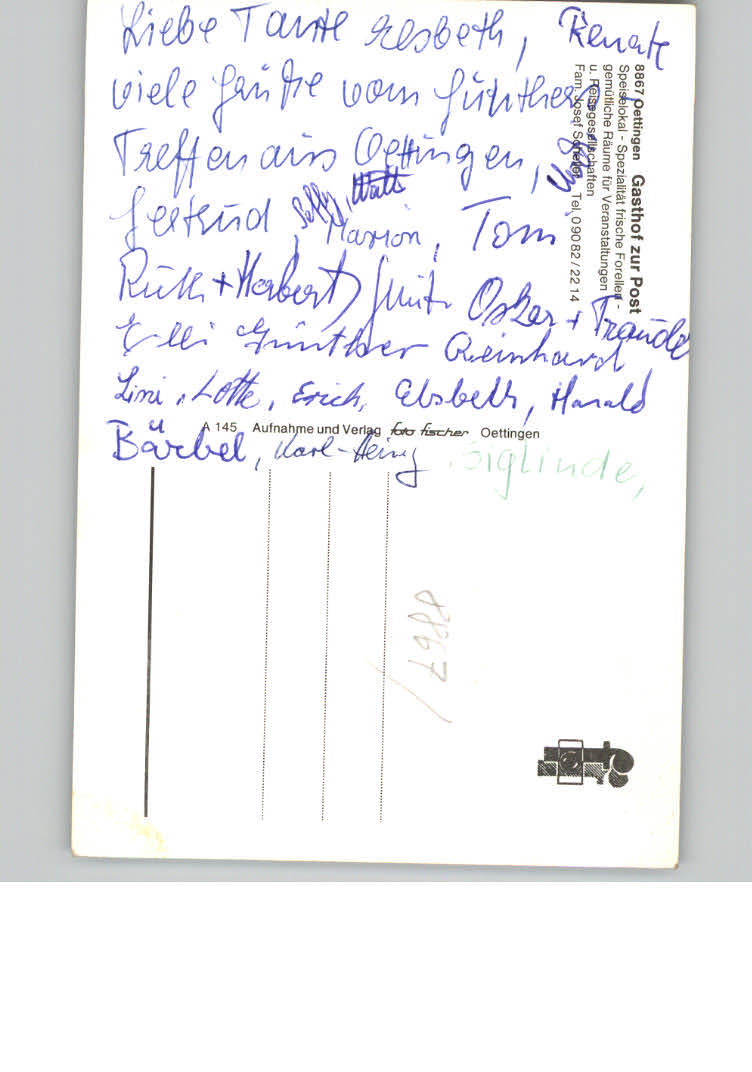 Liebe Tante Elsbeth, Renate
viele Grüße vom Günther
Treffen aus Oettingen,
Gertrud, Marion, Tom
Ruth + Herbert, Oskar + Traudl
Günther Reinhard
Lini, Lotte, Erich, Elsbeth, Harald
Bärbel, Karl-Heinz, Siglinde,
8867 Oettingen Gasthof zur Post
Speiselokal - Spezialität frische Forellen -
gemütliche Räume für Veranstaltungen
u. Reisegesellschaften
Fam. Josef Tel. 0 90 82 / 22 14
A 145 Aufnahme und Verlag foto fischer Oettingen
8867